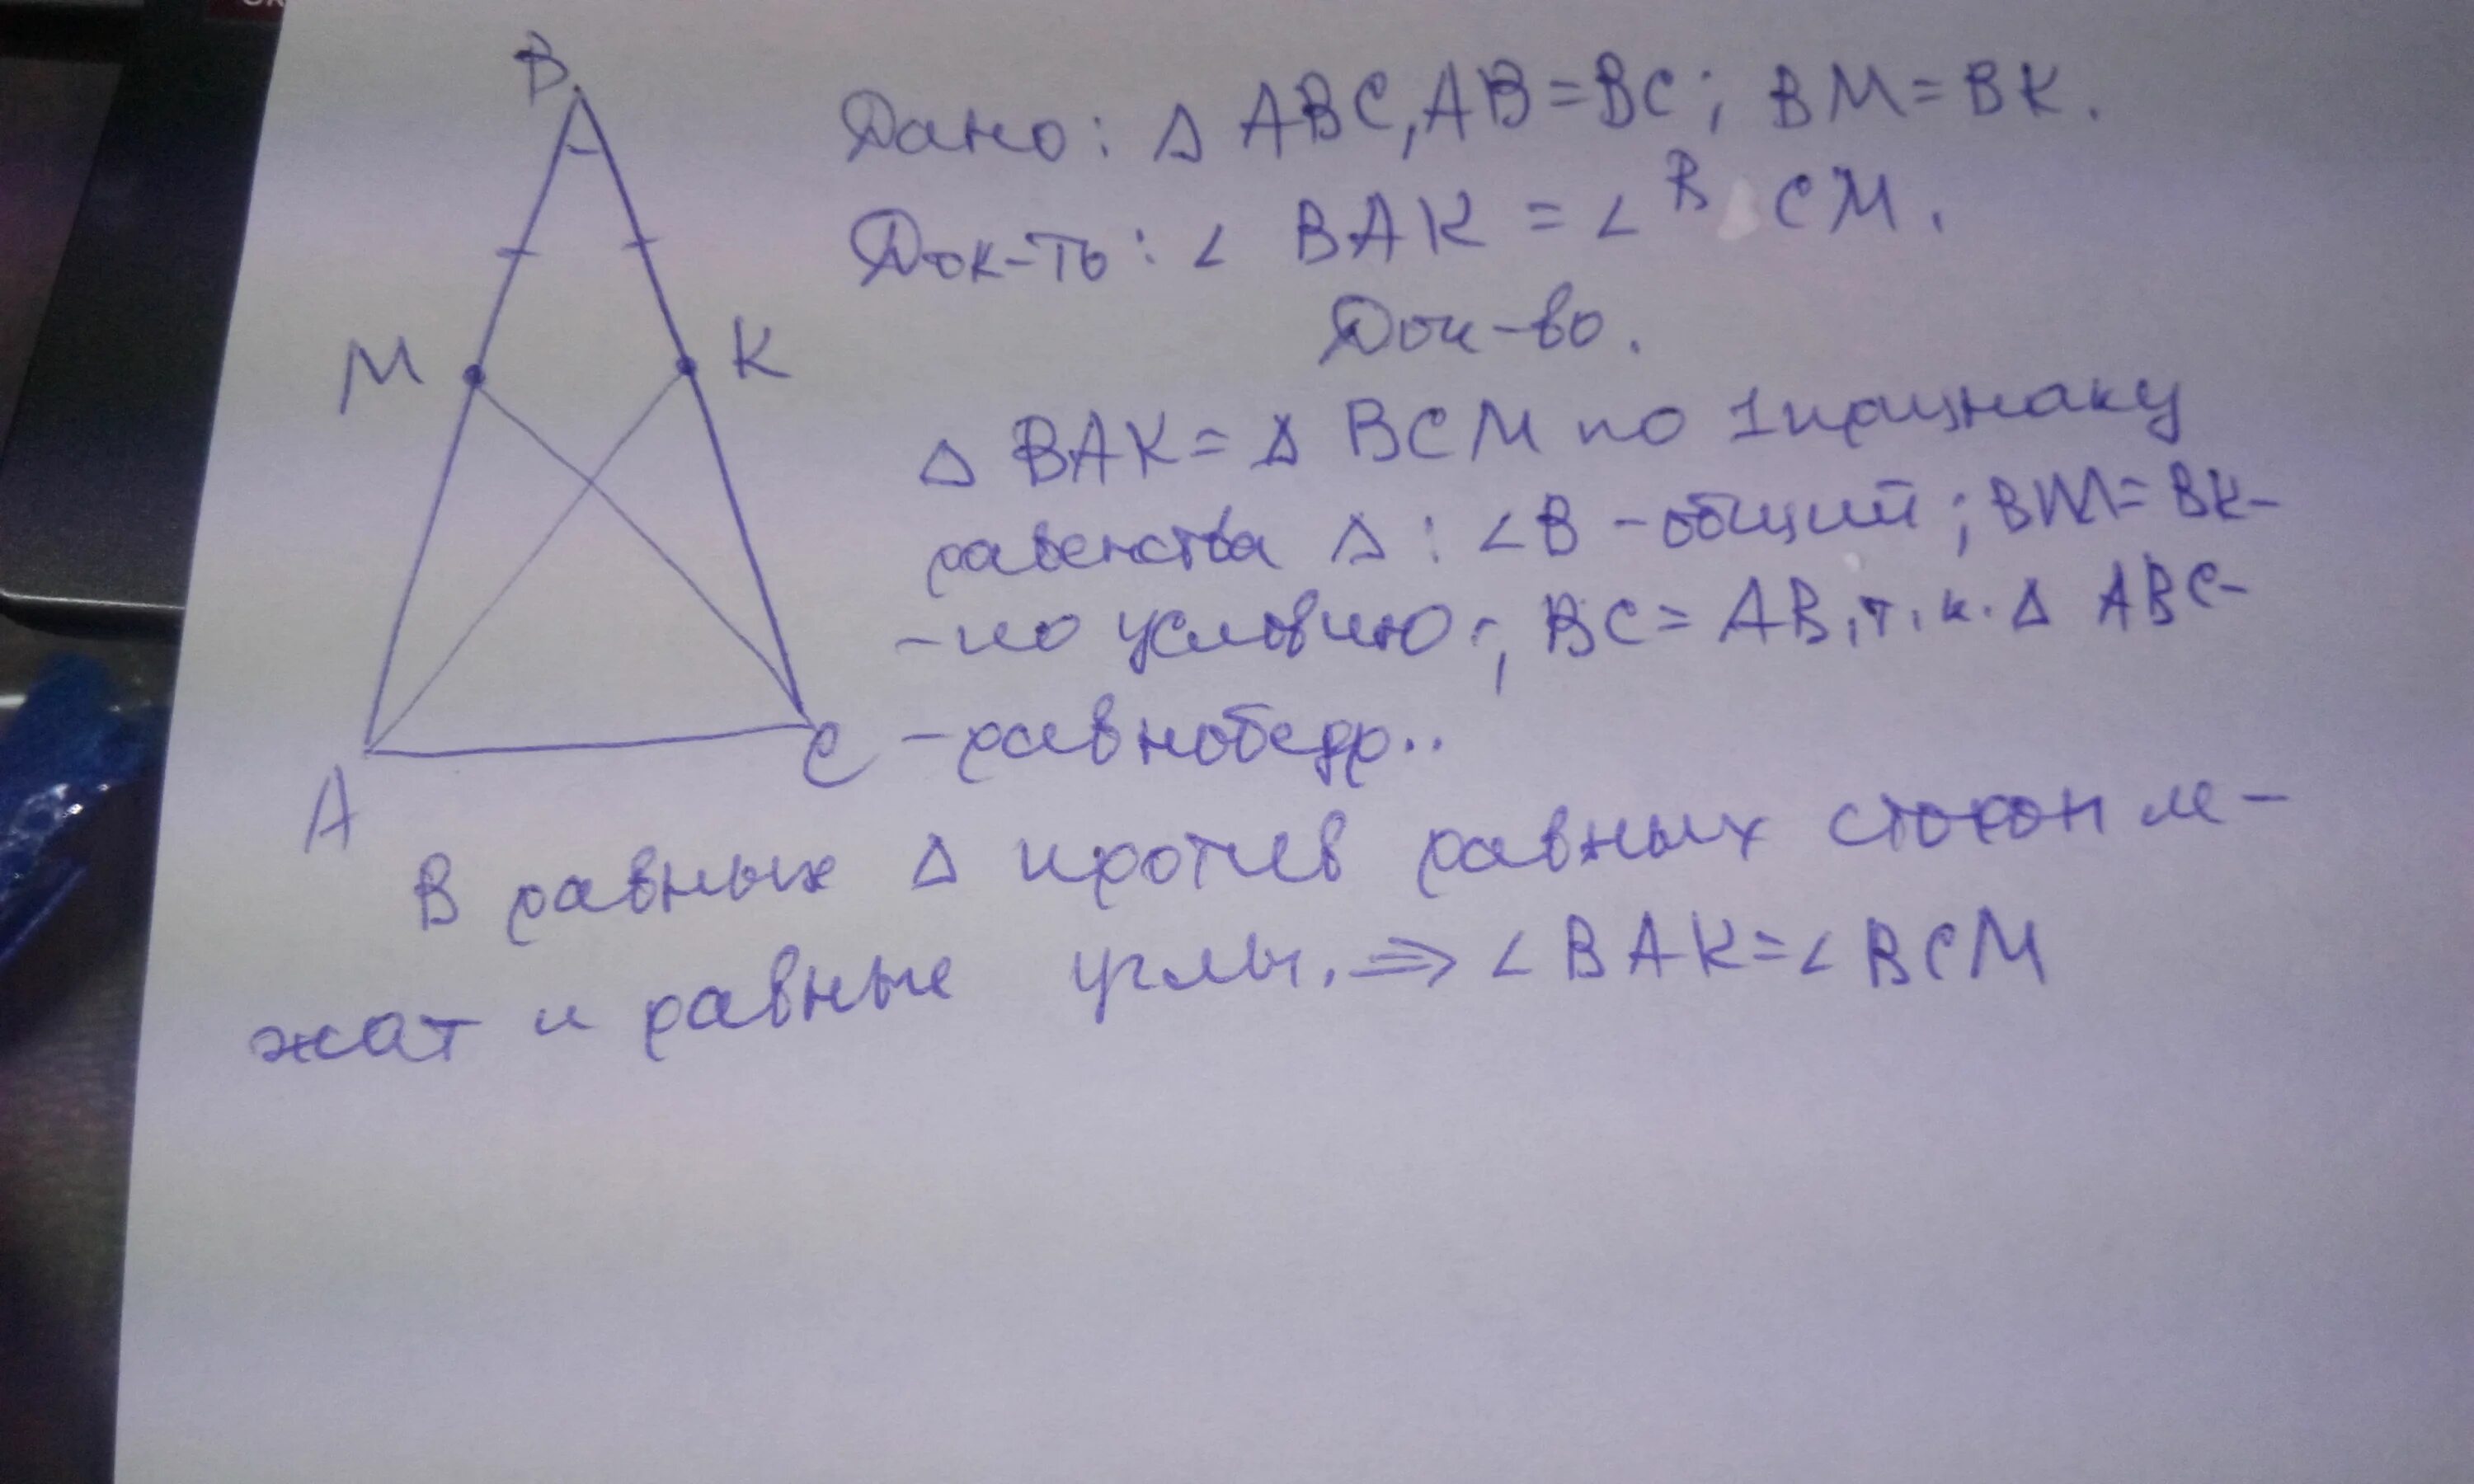 B
Дано: Δ ABC, AB=BC; BM=BK.
Док-ть: ∠ BAK = ∠ BCM.
Док-во.
M
K
Δ BAK = Δ BCM по 1 признаку
равенства Δ: ∠B - общий; BM=BK-
-по условию; BC=AB, т.к. Δ ABC-
C
-равнобедр..
A
В равных Δ против равных сторон ле-
жат и равные углы. ⇒ ∠BAK=∠BCM